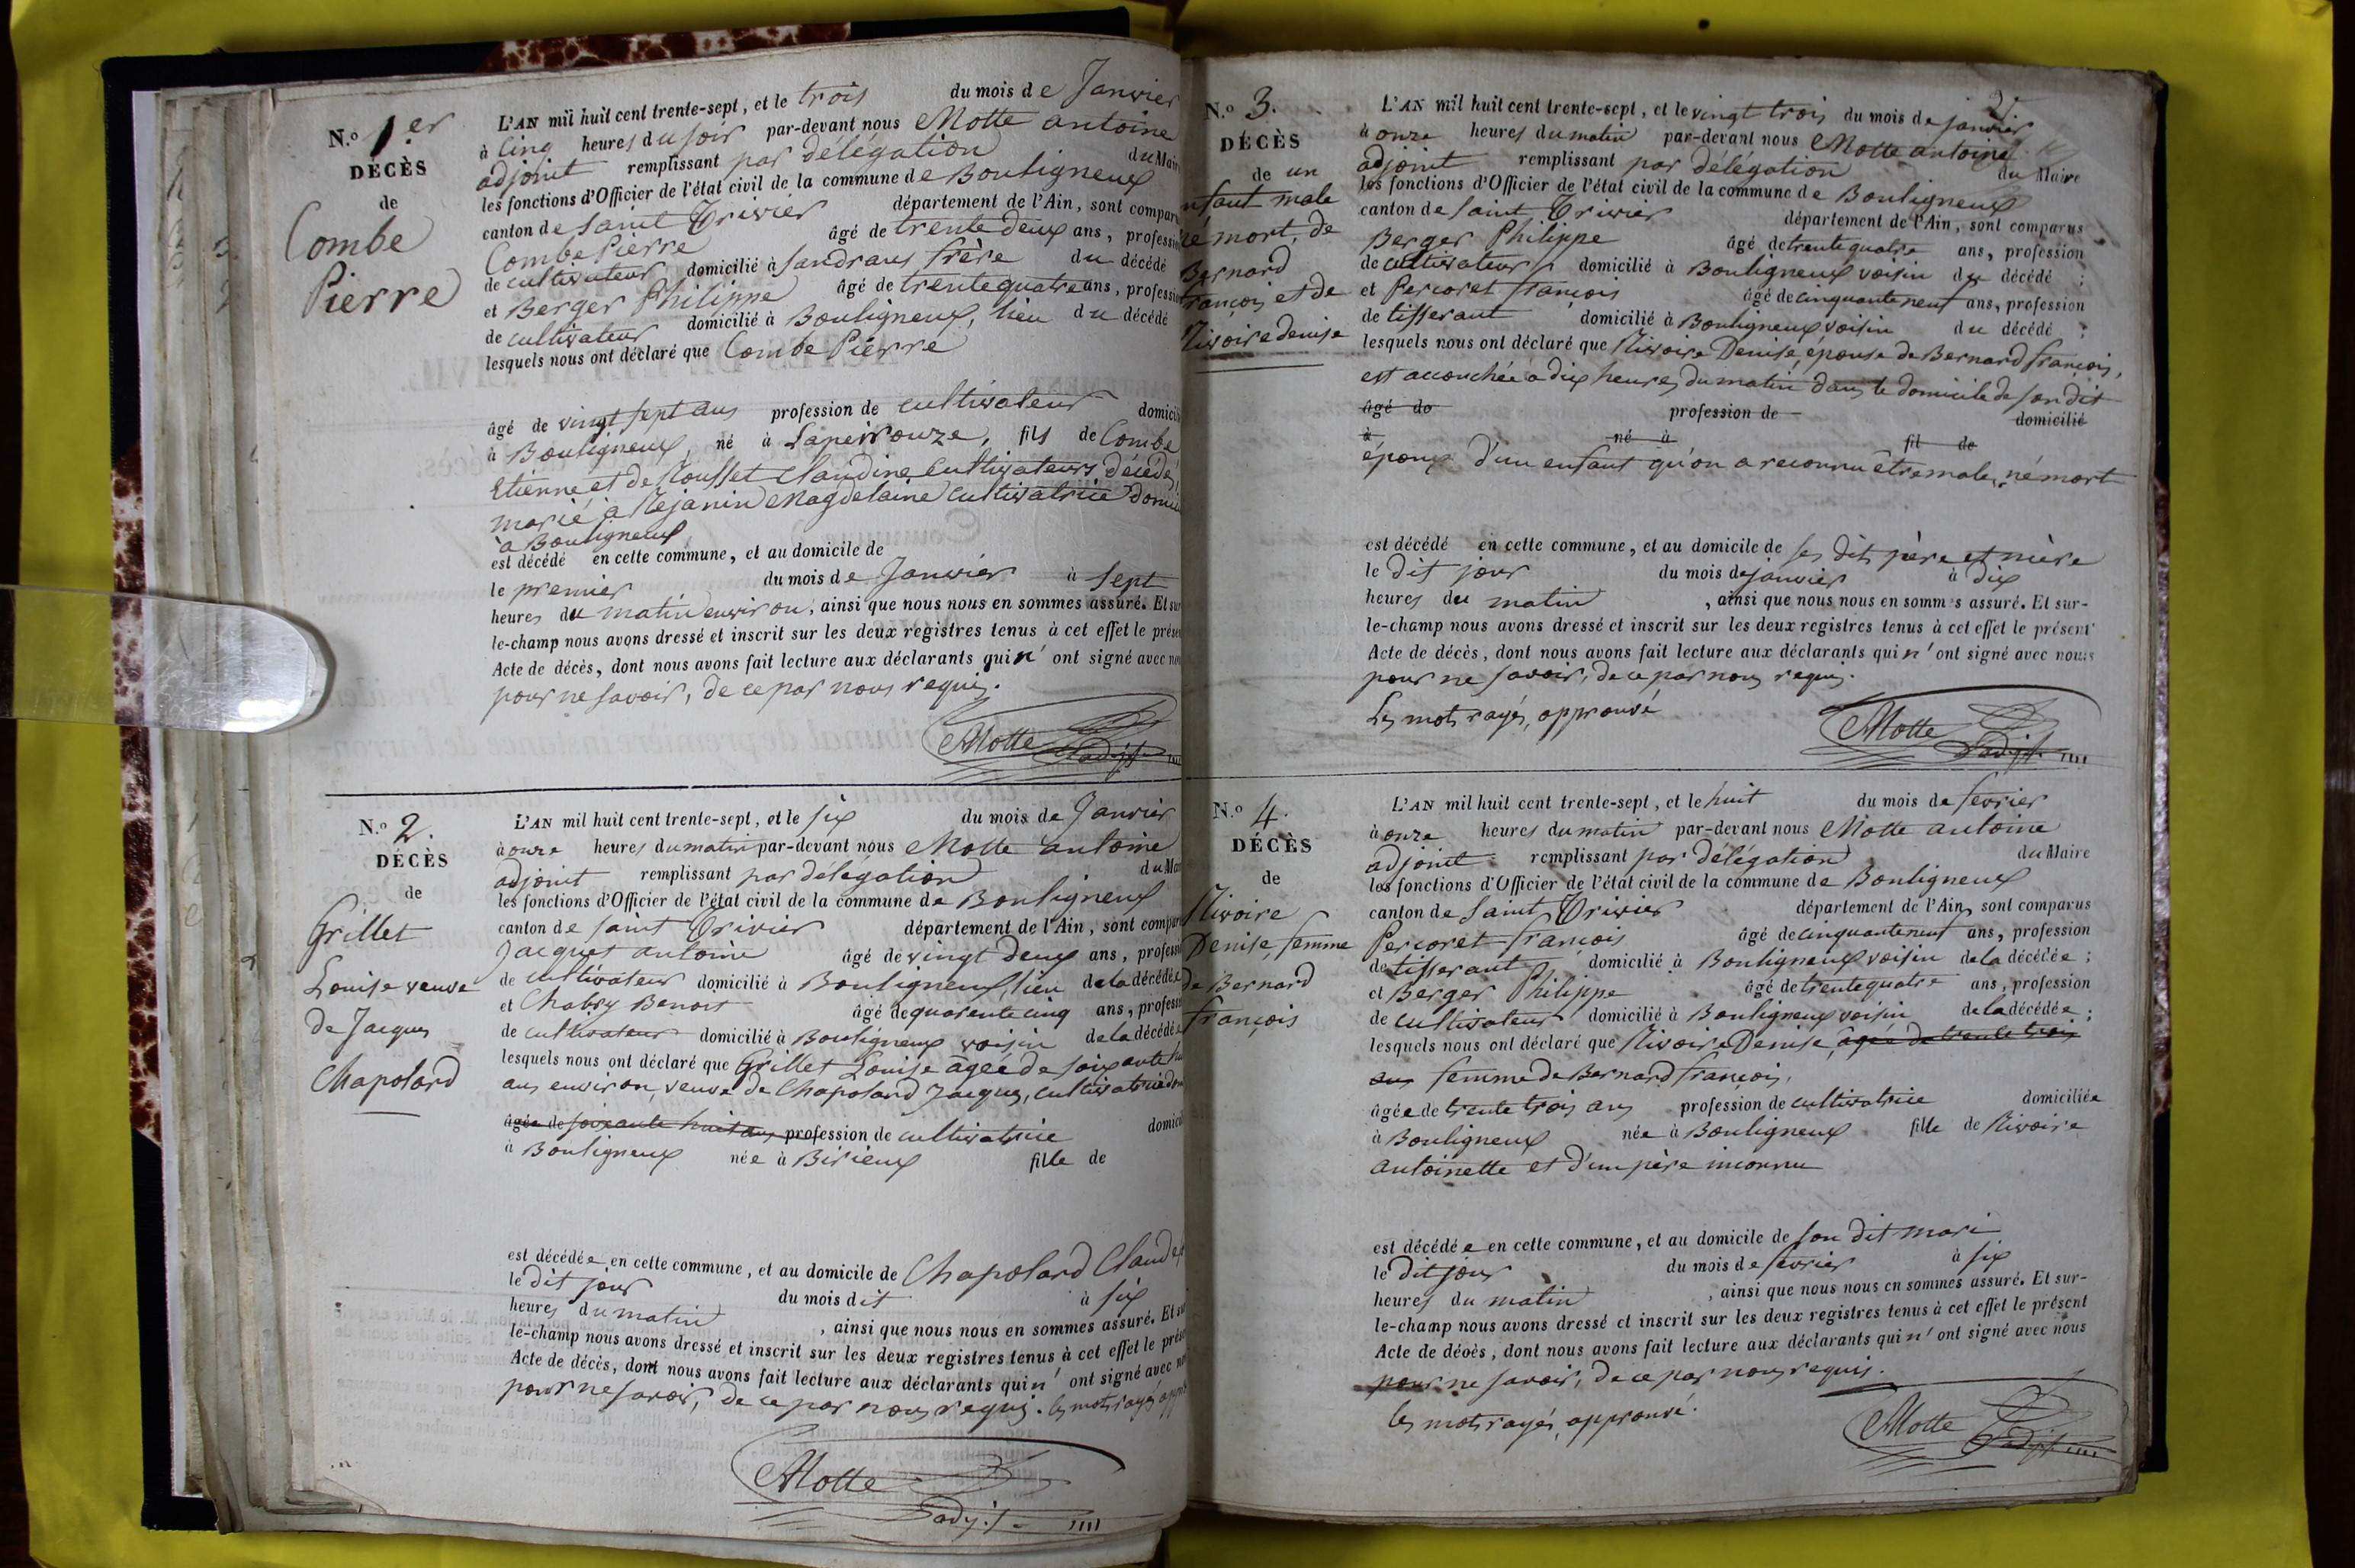 N.o 1er
DÉCÈS
de
Combe
Pierre
L'AN mil huit cent trente-sept, et le trois du mois de Janvier
à Cinq heures du soir par-devant nous Motte antoine
adjoint remplissant par délégation du Mair
les fonctions d'Officier de l'état civil de la commune de Bouligneux
canton de Saint Trivier département de l'Ain, sont compar
Combe Pierre âgé de trente deux ans, professi
de cultivateur domicilié à Sandrans frère du décédé
et Berger Philippe âgé de trente quatre ans, professi
de cultivateur domicilié à Bouligneux, lieu du décédé
lesquels nous ont déclaré que Combe Pierre
âgé de vingt sept ans profession de cultivateur domici
à Bouligneux, né à Lapeirouze, fils de Combe
Etienne et de Mousset Claudine cultivateurs décédés,
marié à Mejanin Magdelaine cultivatrice domi
à Bouligneux
est décédé en cette commune, et au domicile de
le premier du mois de Janvier à Sept
heures du matin environ, ainsi que nous nous en sommes assuré. Et sur
le-champ nous avons dressé et inscrit sur les deux registres tenus à cet effet le prése
Acte de décès, dont nous avons fait lecture aux déclarants qui n'ont signé avec no
pour ne savoir, de ce par nous requis.
Motte
adj.t
N.o 2.
DÉCÈS
de
Grillet
Louise veuve
de Jacques
Chapolard
L'AN mil huit cent trente-sept, et le six du mois de Janvier
à onze heures du matin par-devant nous Motte antoine
adjoint remplissant par délégation du Mai
les fonctions d'Officier de l'état civil de la commune de Bouligneux
canton de Saint Trivier département de l'Ain, sont compar
Jacquet antoine âgé de vingt deux ans, professi
de cultivateur domicilié à Bouligneux, lieu de la décédée
et Chabry Benoit âgé de quarente cinq ans, professi
de cultivateur domicilié à Bouligneux voisin de la décédée
lesquels nous ont déclaré que Grillet Louise agée de soixante hu
ans environ, veuve de Chapolard Jacques, cultivatrice dom
âgée de soixante huit ans profession de cultivatrice domici
à Bouligneux née à Birieux fille de
est décédée en cette commune, et au domicile de Chapolard Claude
le dit jour du mois dit à six
heures du matin, ainsi que nous nous en sommes assuré. Et sur
le-champ nous avons dressé et inscrit sur les deux registres tenus à cet effet le prése
Acte de décès, dont nous avons fait lecture aux déclarants qui n'ont signé avec no
pour ne savoir, de ce par nous requis. les mots rayés appr
Motte
adj.t
2.
N.o 3.
DÉCÈS
de un
nfant male
né mort, de
Bernard
françois et de
Rivoire denise
L'AN mil huit cent trente-sept, et le vingt trois du mois de janvier
à onze heures du matin par-devant nous Motte antoine
adjoint remplissant par délégation du Maire
les fonctions d'Officier de l'état civil de la commune de Bouligneux
canton de Saint Trivier département de l'Ain, sont comparus
Berger Philippe âgé de trente quatre ans, profession
de cultivateur domicilié à Bouligneux voisin du décédé ;
et Percoret françois âgé de cinquante neuf ans, profession
de tisserant domicilié à Bouligneux voisin du décédé ;
lesquels nous ont déclaré que Rivoire Denise, épouse de Bernard françois,
est accouchée à dix heures du matin dans le domicile de son dit
âgé de profession de domicilié
à né à fil de
époux d'un enfant qu'on a reconnu être male, né mort
est décédé en cette commune, et au domicile de ses dits père et mère
le dit jour du mois de janvier à dix
heures du matin, ainsi que nous nous en sommes assuré. Et sur-
le-champ nous avons dressé et inscrit sur les deux registres tenus à cet effet le présent
Acte de décès, dont nous avons fait lecture aux déclarants qui n'ont signé avec nous
pour ne savoir, de ce par nous requis.
Les mots rayés, approuvé
Motte
adj.t
N.o 4.
DÉCÈS
de
Rivoire
Denise, femme
de Bernard
françois
L'AN mil huit cent trente-sept, et le huit du mois de fevrier
à onze heures du matin par-devant nous Motte antoine
adjoint remplissant par délégation du Maire
les fonctions d'Officier de l'état civil de la commune de Bouligneux
canton de Saint Trivier département de l'Ain, sont comparus
Percoret françois âgé de cinquante neuf ans, profession
de tisserant domicilié à Bouligneux voisin de la décédée ;
et Berger Philippe âgé de trente quatre ans, profession
de cultivateur domicilié à Bouligneux voisin de la décédée ;
lesquels nous ont déclaré que Rivoire Denise, agée de trente trois
ans femme de Bernard françois,
âgée de trente trois ans profession de cultivatrice domiciliée
à Bouligneux née à Bouligneux fille de Rivoire
antoinette et d'un père inconnu
est décédée en cette commune, et au domicile de son dit mari
le dit jour du mois de fevrier à six
heures du matin, ainsi que nous nous en sommes assuré. Et sur-
le-champ nous avons dressé et inscrit sur les deux registres tenus à cet effet le présent
Acte de décès, dont nous avons fait lecture aux déclarants qui n'ont signé avec nous
pour ne savoir, de ce par nous requis.
les mots rayés, approuvé.
Motte
adj.t